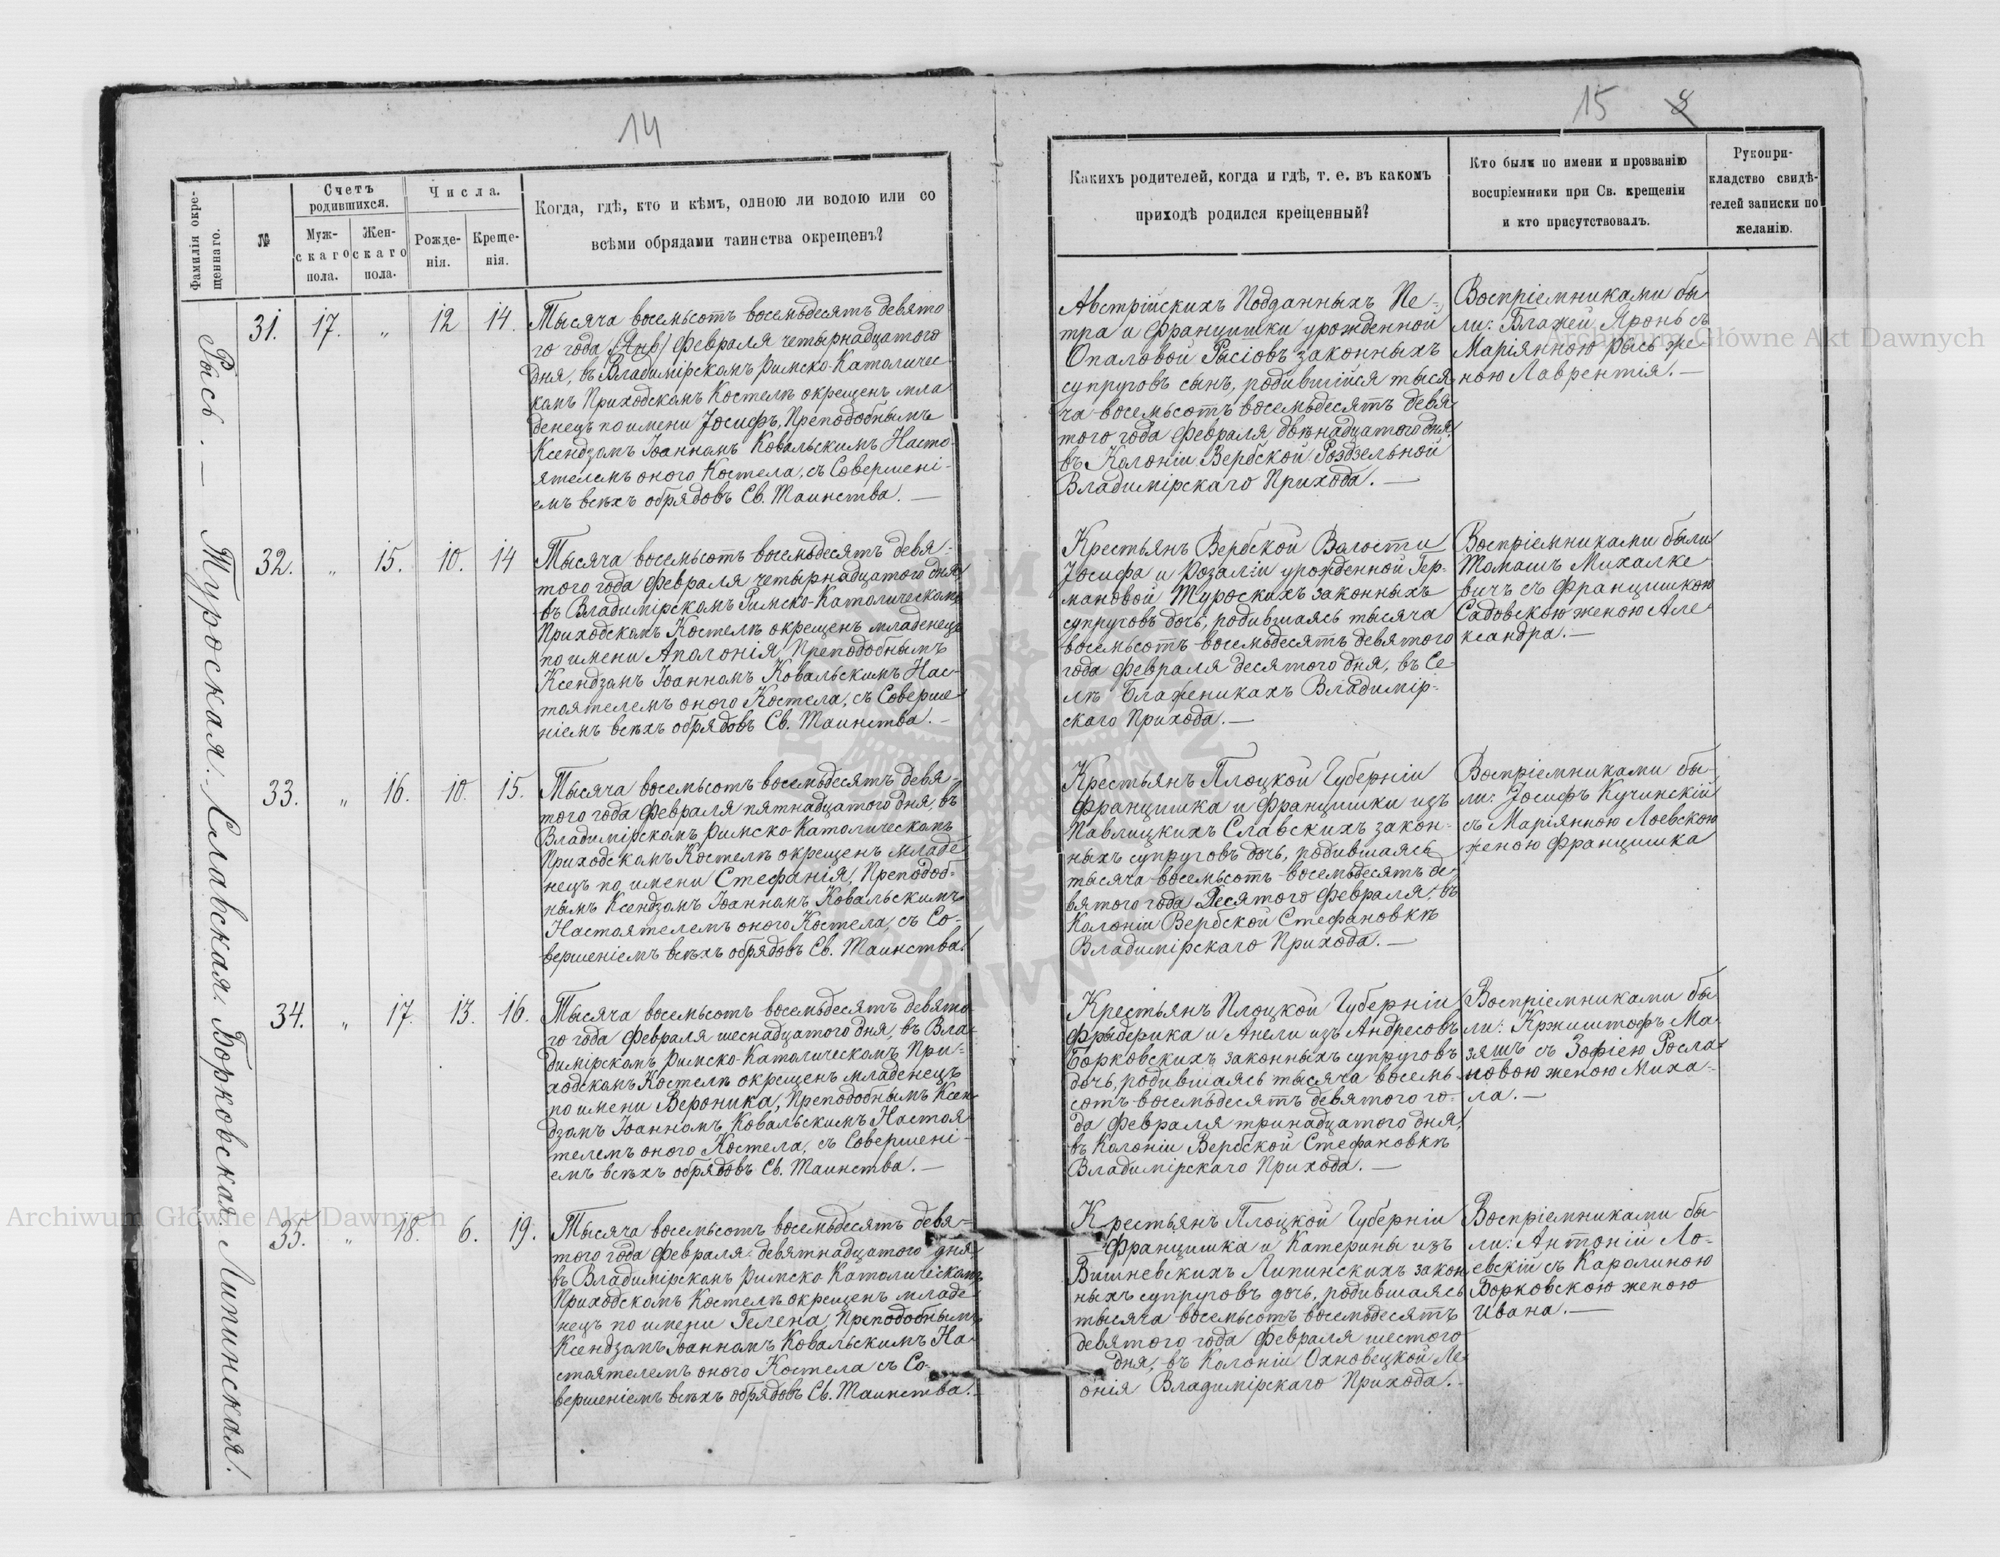 14
Фамилія окре-
щеннаго.
№
Счетъ
родившихся.
Муж-
скаго
пола.
Жен-
скаго
пола.
Числа.
Рожде-
нія.
Креще-
нія.
Когда, гдѣ, кто и кѣмъ, одною ли водою или со
всѣми обрядами таинства окрещенъ?
Рысь. —
31. 17. „ 12 14.
Тысяча восемьсотъ восемьдесятъ девято
го года (Янв) Февраля четырнадцатого
дня, въ Владимірскомъ Римско-Католичес
комъ Приходскомъ Костелѣ окрещенъ мла
денецъ по имени Іосифъ, Преподобнымъ
Ксендзомъ Іоанномъ Ковальскимъ Насто-
ятелемъ оного Костела, съ Совершені-
емъ всѣхъ обрядовъ Св. Таинства. —
Туроская.
32. „ 15. 10. 14
Тысяча восемьсотъ восемьдесятъ девя-
того года Февраля четырнадцатого дня,
въ Владимірскомъ Римско-Католическомъ
Приходскомъ Костелѣ окрещенъ младенецъ
по имени Аполонія, Преподобнымъ
Ксендзомъ Іоанномъ Ковальскимъ Нас-
тоятелемъ оного Костела, съ Соверше
ніемъ всѣхъ обрядовъ Св. Таинства. —
Славская.
33. „ 16. 10. 15.
Тысяча восемьсотъ восемьдесятъ девя-
того года Февраля пятнадцатого дня, въ
Владимірскомъ Римско-Католическомъ
Приходскомъ Костелѣ окрещенъ младе
нецъ по имени Стефанія, Преподоб-
нымъ Ксендзомъ Іоанномъ Ковальскимъ
Настоятелемъ оного Костела, съ Со-
вершеніемъ всѣхъ обрядовъ Св. Таинства.
Борковская.
34. „ 17. 13. 16.
Тысяча восемьсотъ восемьдесятъ девято
го года Февраля шеснадцатого дня, въ Вла-
димірскомъ Римско-Католическомъ При-
ходскомъ Костелѣ окрещенъ младенецъ
по имени Вероника, Преподобнымъ Ксен
дзомъ Іоанномъ Ковальскимъ Настоя
телемъ оного Костела, съ Совершені-
емъ всѣхъ обрядовъ Св. Таинства. —
Липинская.
35. „ 18. 6. 19.
Тысяча восемьсотъ восемьдесятъ девя-
того года Февраля девятнадцатого дня
въ Владимірскомъ Римско Католическомъ
Приходскомъ Костелѣ окрещенъ младе
нецъ по имени Гелена, Преподобнымъ
Ксендзомъ Іоанномъ Ковальскимъ На-
стоятелемъ оного Костела съ Со-
вершеніемъ всѣхъ обрядовъ Св. Таинства.
15 8
Какихъ родителей, когда и гдѣ, т. е. въ какомъ
приходѣ родился крещенный?
Кто были по имени и прозванію
воспріемники при Св. крещеніи
и кто присутствовалъ.
Рукопри-
кладство свидѣ-
телей записки по
желанію.
Австрійскихъ Подданныхъ Пе-
тра и Францишки урожденной
Опаловой Рысіовъ законныхъ
супруговъ сынъ, родившійся тыся
ча восемьсотъ восемьдесятъ девя
того года Февраля двѣнадцатого дня,
въ Колоніи Вербской Роздзельной
Владимірскаго Прихода. —
Воспріемниками бы
ли: Блажей Яронь съ
Маріянною Рысь же
ною Лаврентія. —
Крестьянъ Вербской Волости
Іосифа и Розаліи урожденной Гер-
мановой Туроскихъ законныхъ
супруговъ дочь, родившаясь тысяча
восемьсотъ восемьдесятъ девятого
года Февраля десятого дня, въ Се-
лѣ Блаженикахъ Владимір-
скаго Прихода. —
Воспріемниками были
Томашъ Михалке
вичъ съ Францишкою
Садовскою женою Але
ксандра. —
Крестьянъ Плоцкой Губерніи
Францишка и Францишки изъ
Павлицкихъ Славскихъ закон-
ныхъ супруговъ дочь, родившаясь
тысяча восемьсотъ восемьдесятъ де-
вятого года Десятого Февраля, въ
Колоніи Вербской Стефановкѣ
Владимірскаго Прихода. —
Воспріемниками бы-
ли: Іосифъ Кучинскій
съ Маріянною Лоевскою
женою Францишка
Крестьянъ Плоцкой Губерніи
Фрыдерика и Анели изъ Андресовъ
Борковскихъ законныхъ супруговъ
дочь, родившаясь тысяча восемь-
сотъ восемьдесятъ девятого го-
да Февраля тринадцатого дня,
въ Колоніи Вербской Стефановкѣ
Владимірскаго Прихода. —
Воспріемниками бы
ли: Кржиштофъ Ма-
зяшъ съ Зофіею Росла-
новою женою Миха-
ла. —
Крестьянъ Плоцкой Губерніи
Францишка и Катерины изъ
Вишневскихъ Липинскихъ закон
ныхъ супруговъ дочь, родившаясь
тысяча восемьсотъ восемьдесятъ
девятого года Февраля шестого
дня, въ Колоніи Охновецкой Ле-
онія Владимірскаго Прихода. —
Воспріемниками бы
ли: Антоній Ло-
евскій съ Каролиною
Борковскою женою
Ивана. —
Archiwum Główne Akt Dawnych
Archiwum Główne Akt Dawnych